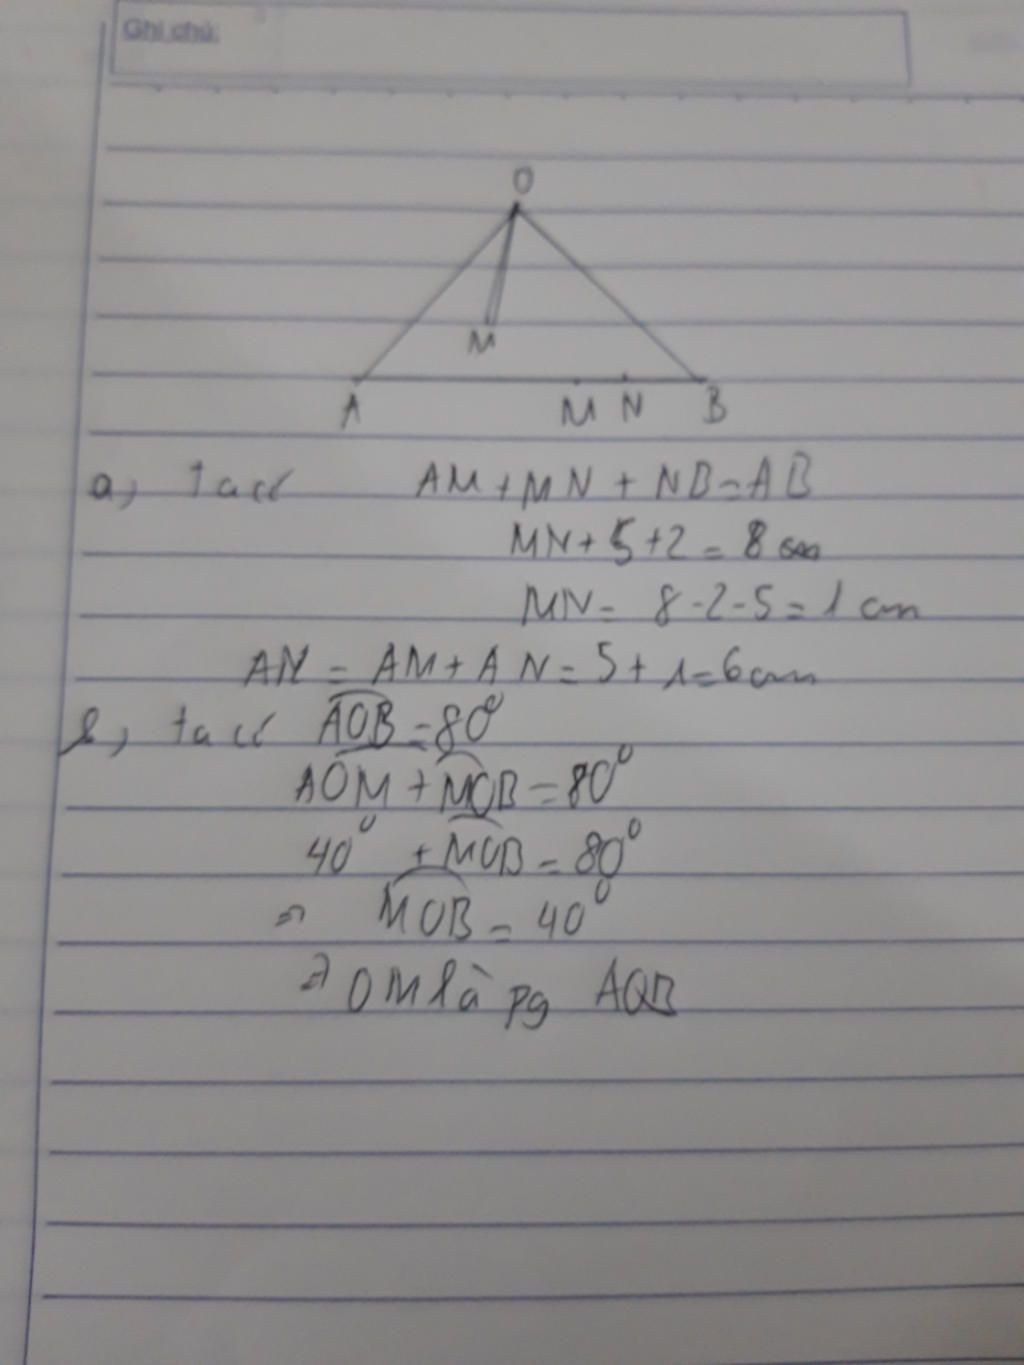 Ghi chú:
O
M
A M N B
a, ta có AM + MN + NB = AB
MN + 5 + 2 = 8 cm
MN = 8 - 2 - 5 = 1 cm
AN = AM + AN = 5 + 1 = 6 cm
b, ta có AOB = 80⁰
AOM + MOB = 80⁰
40⁰ + MOB = 80⁰
⇒ MOB = 40⁰
⇒ OM là pg AOB